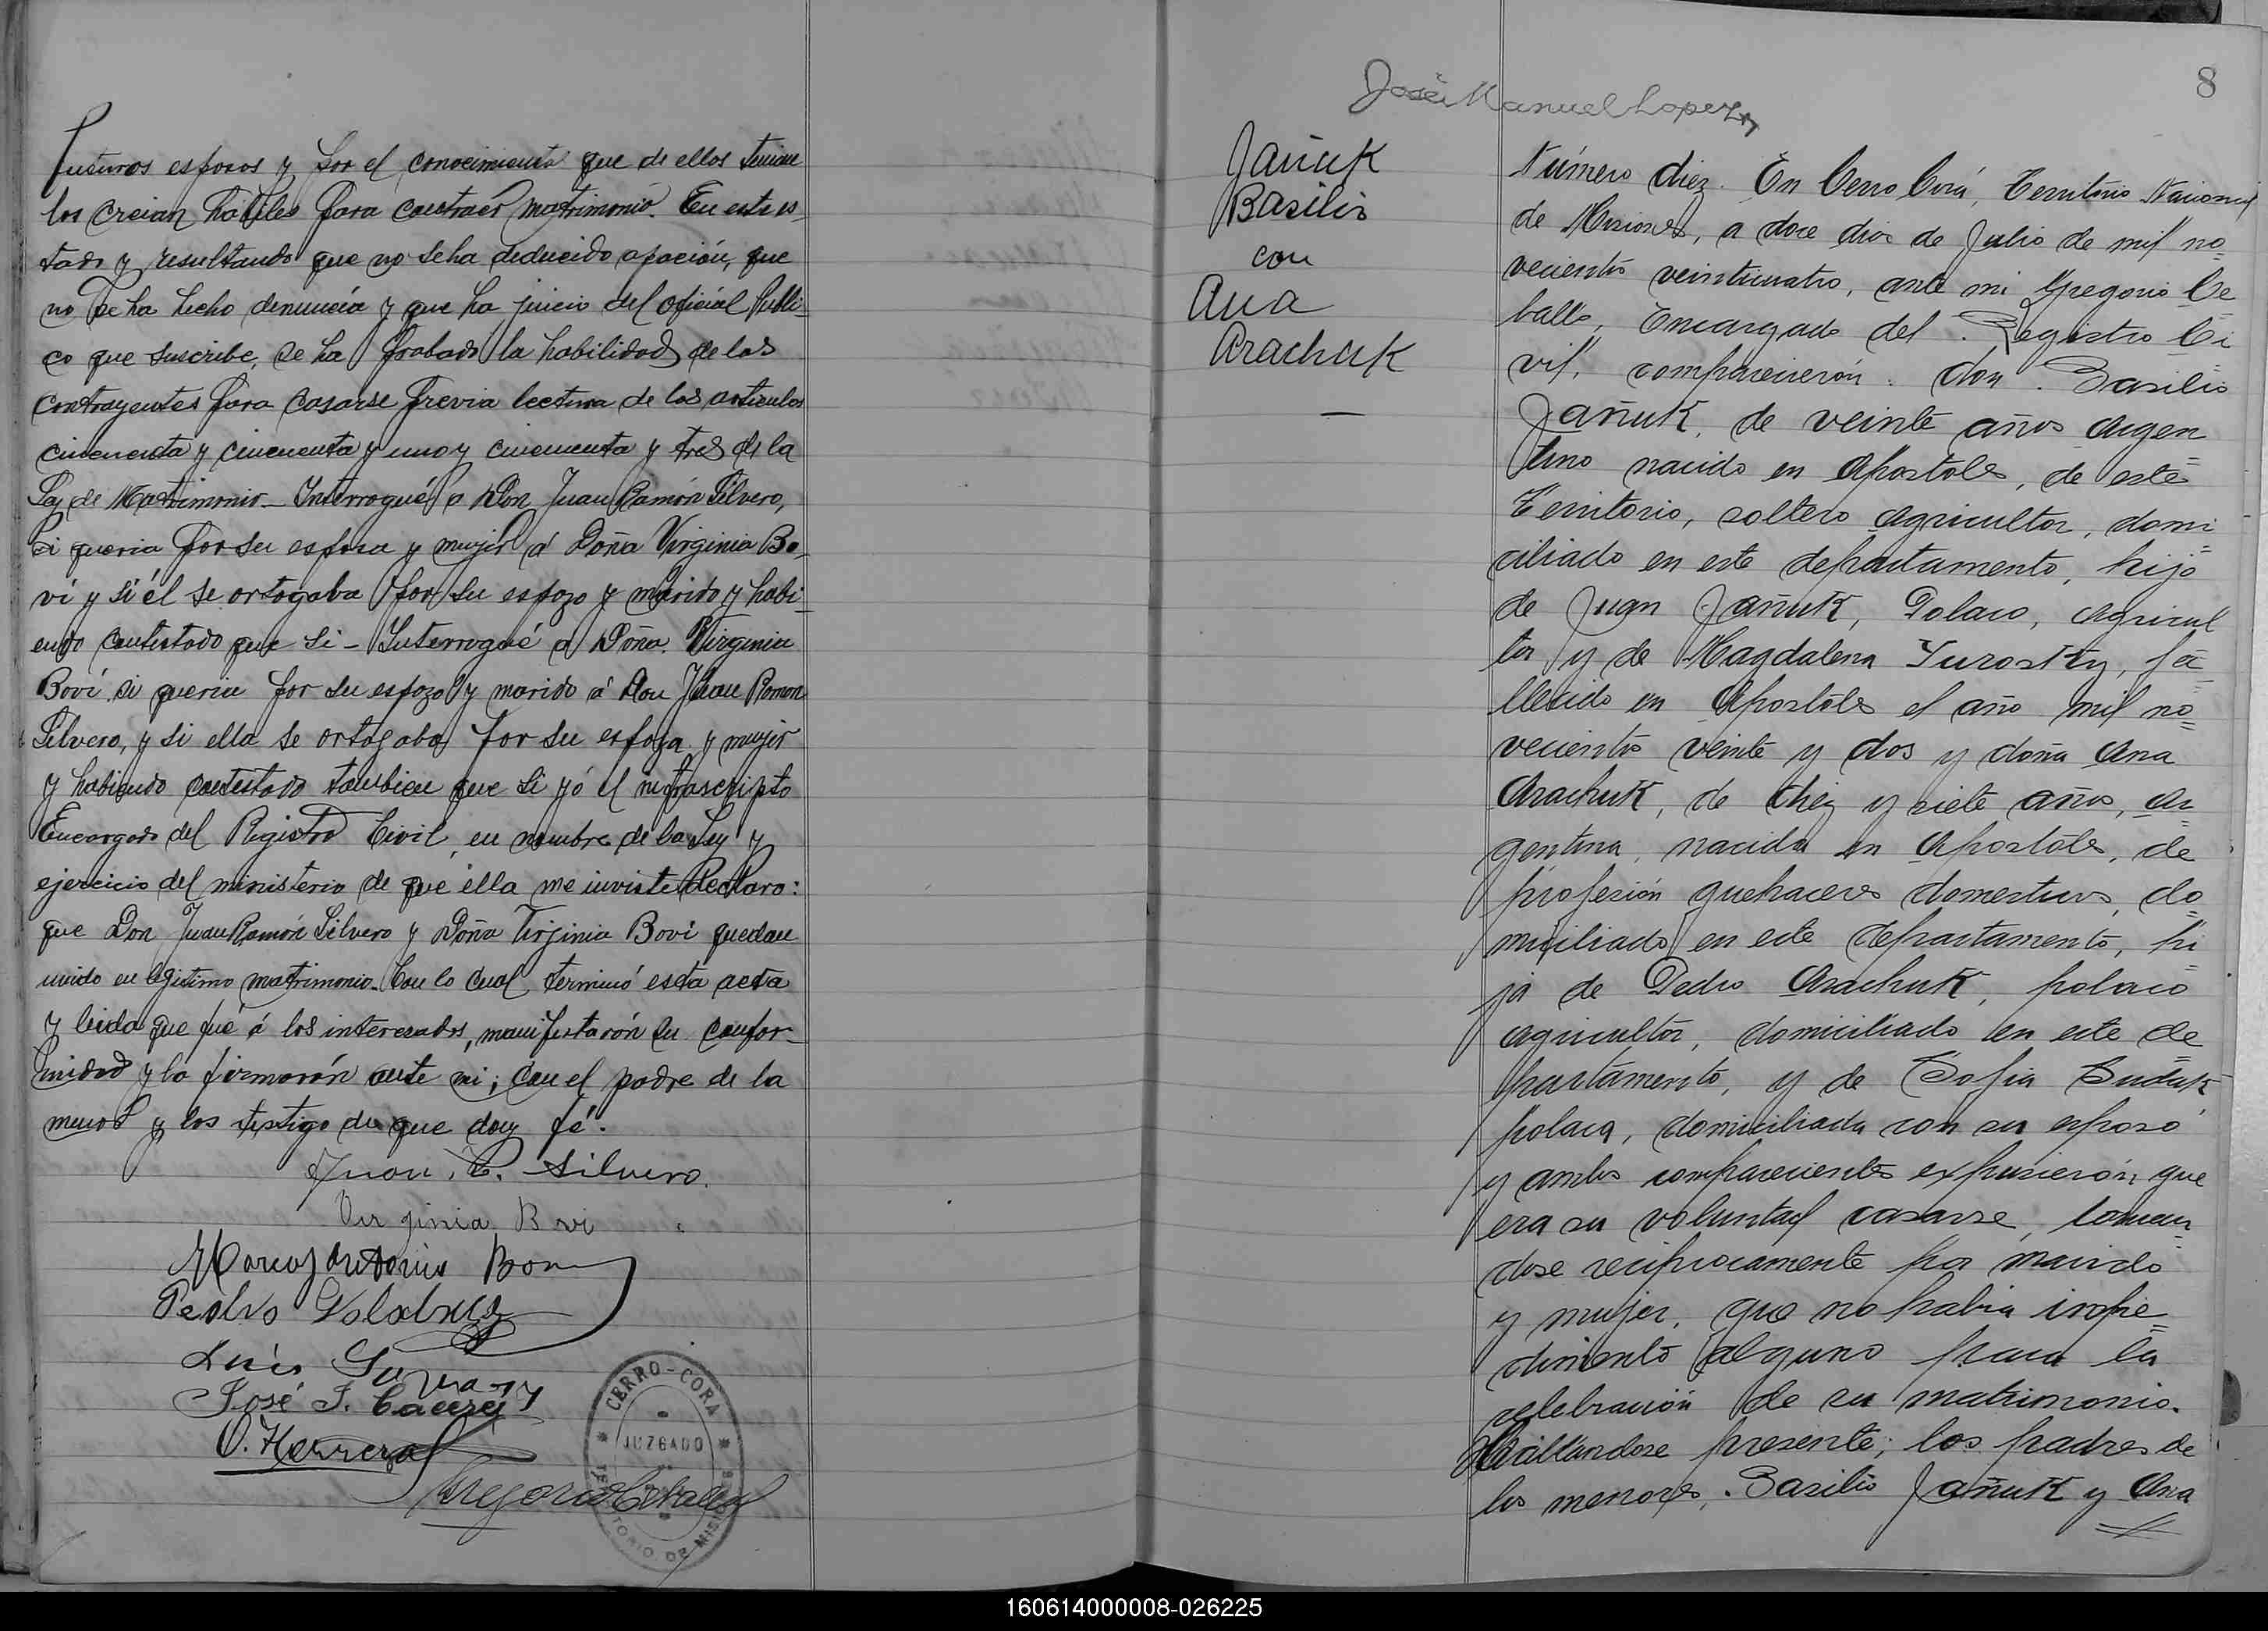 futuros esposos y por el conocimiento que de ellos tenian
los creian hábiles para contraer matrimonio. En este es-
tado y resultando que no se ha deducido oposición, que
no se ha hecho denuncia y que ha juicio del oficial Publi-
co que suscribe, se ha probado la habilidad de los
contrayentes para casarse previa lectura de los articulos
cincuenta y cincuenta y uno y cincuenta y tres de la
Ley de Matrimonio - Interrogué a Don Juan Ramón Silvero,
si queria por su esposa y mujer á Doña Virginia Bo-
ví y si él se ortogaba por su espozo y marido y habi-
endo contestado que si - Interrogué a Doña Virginia
Boví si queria por su espozo y marido á Don Juan Ramon
Silvero, y si ella se ortogaba por su espoza y mujer
y habiendo contestado tambien que si yó el infrascripto
Encargado del Registro Civil, en nombre de la Ley y
ejercicio del ministerio de que ella me inviste Declaro:
que Don Juan Ramón Silvero y Doña Virjinia Bovi quedan
unido en legitimo matrimonio. Con lo cual terminó esta acta
y leida que fué á los interesados, manifestarón su confor-
midad y la firmarón ante mi; con el padre de la
menor y los testigo de que doy fé.
Juan R. Silvero.
Virginia Bovi
Marcos Antonio Bovi
Pedro
Luis
José F. Caceres
O. Herrera
Gregorio Ceballo
CERRO-CORA
JUZGADO
TERRITORIO DE MISIONES
8
José Manuel Lopez
Jañuk
Basilio
con
Ana
Arachuk
Número diez. En Cerro Corá, Territorio Nacional
de Misiones, a doce dias de Julio de mil no
vecientos veinticuatro, ante mi Gregorio Ce
ballo, Encargado del Registro Ci
vil, comparecierón: don Basilio
Jañuk, de veinte años argen
tino nacido en Apostoles, de este
Territorio, soltero agricultor, domi
ciliado en este departamento, hijo
de Juan Jañuk, Polaco, agricul
tor y de Magdalena Turosky, fa
llecido en Apostóles el año mil no
vecientos veinte y dos y doña Ana
Arachuk, de diez y siete años, ar
gentina, nacida en Apostóles, de
profesión quehaceres domesticos, do
miciliado en este departamento, hi
ja de Pedro Arachuk, polaco
agricultor, domiciliado en este de
partamento, y de Sofia
polaca, domiciliada con su esposo
y ambos comparecientes expusierón, que
era su voluntad casarse, toman
dose reciprocamente por marido
y mujer, que no habia impe
dimento alguno para la
celebración de su matrimonio.
Hallandose presente; los padres de
los menores, Basilio Jañuk y Ana